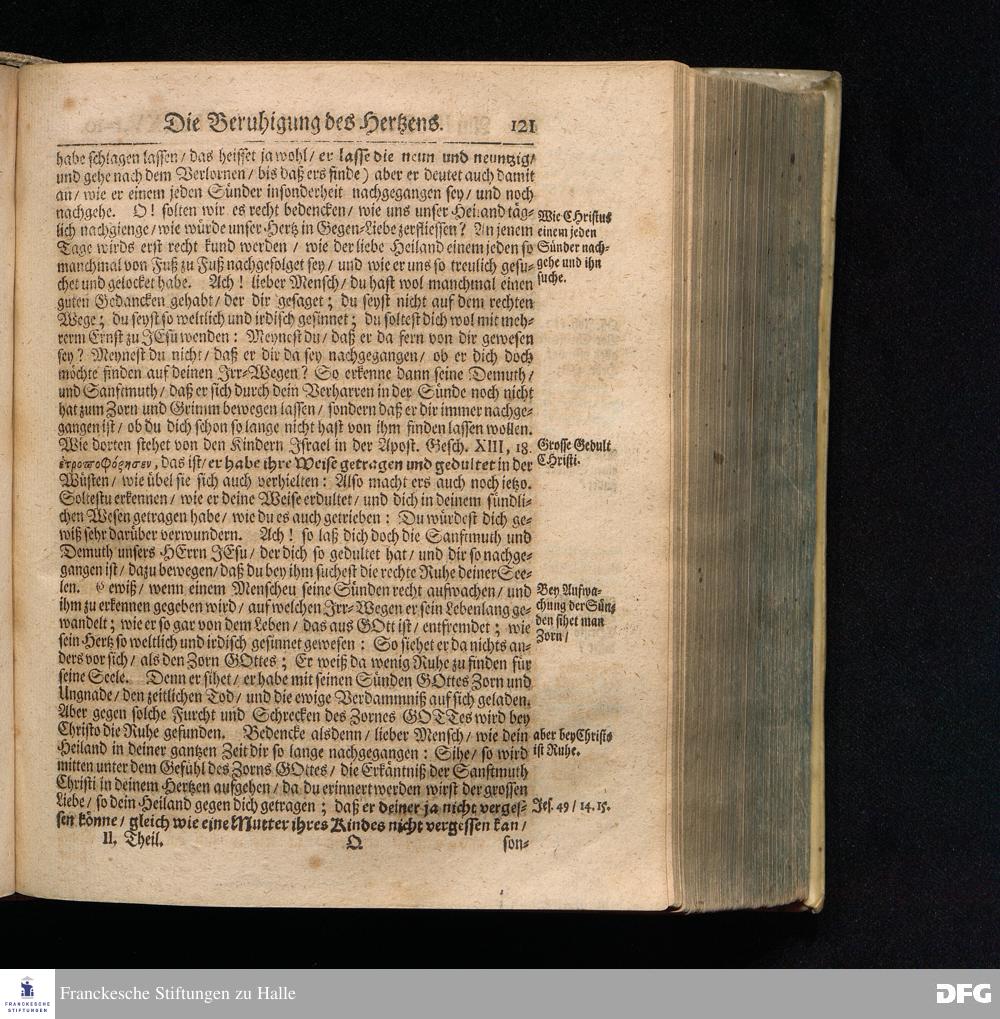 Die Beruhigung des Hertzens. 121
habe schlagen lassen / das heisset ja wohl / er lasse die neun und neuntzig /
und gehe nach dem Verlornen / bis daß ers finde ) aber er deutet auch damit
an / wie er einem jeden Sünder insonderheit nachgegangen sey / und noch
nachgehe. O! solten wir es recht bedencken / wie uns unser Heiland täg-
lich nachgienge / wie würde unser Hertz in Gegen-Liebe zerfliessen? An jenem
Tage wirds erst recht kund werden / wie der liebe Heiland einem jeden so
manchmal von Fuß zu Fuß nachgefolget sey / und wie er uns so treulich gesu-
chet und gelocket habe. Ach! lieber Mensch / du hast wol manchmal einen
guten Gedancken gehabt / der dir gesaget; du seyst nicht auf dem rechten
Wege; du seyst so weltlich und irdisch gesinnet; du soltest dich wol mit meh-
rerm Ernst zu JEsu wenden: Meynest du / daß er da fern von dir gewesen
sey? Meynest du nicht / daß er dir da sey nachgegangen / ob er dich doch
möchte finden auf deinen Irr-Wegen? So erkenne dann seine Demuth /
und Sanftmuth / daß er sich durch dein Verharren in der Sünde noch nicht
hat zum Zorn und Grimm bewegen lassen / sondern daß er dir immer nachge-
gangen ist / ob du dich schon so lange nicht hast von ihm finden lassen wollen.
Wie dorten stehet von den Kindern Israel in der Apost. Gesch. XIII, 18.
ἐτροποφόρησεν, das ist / er habe ihre Weise getragen und gedultet in der
Wüsten / wie übel sie sich auch verhielten: Also macht ers auch noch ietzo.
Soltestu erkennen / wie er deine Weise erdultet / und dich in deinem sündli-
chen Wesen getragen habe / wie du es auch getrieben: Du würdest dich ge-
wiß sehr darüber verwundern. Ach! so laß dich doch die Sanftmuth und
Demuth unsers HErrn JEsu / der dich so gedultet hat / und dir so nachge-
gangen ist / dazu bewegen / daß du bey ihm suchest die rechte Ruhe deiner See-
len. Gewiß / wenn einem Menscheu seine Sünden recht aufwachen / und
ihm zu erkennen gegeben wird / auf welchen Irr-Wegen er sein Lebenlang ge-
wandelt; wie er so gar von dem Leben / das aus GOtt ist / entfremdet; wie
sein Hertz so weltlich und irdisch gesinnet gewesen: So siehet er da nichts an-
ders vor sich / als den Zorn GOttes; Er weiß da wenig Ruhe zu finden für
seine Seele. Denn er sihet / er habe mit seinen Sünden GOttes Zorn und
Ungnade / den zeitlichen Tod / und die ewige Verdammniß auf sich geladen.
Aber gegen solche Furcht und Schrecken des Zornes GOTTes wird bey
Christo die Ruhe gefunden. Bedencke alsdenn / lieber Mensch / wie dein
Heiland in deiner gantzen Zeit dir so lange nachgegangen: Sihe / so wird
mitten unter dem Gefühl des Zorns GOttes / die Erkäntniß der Sanftmuth
Christi in deinem Hertzen aufgehen / da du erinnert werden wirst der grossen
Liebe / so dein Heiland gegen dich getragen; daß er deiner ja nicht verges-
sen könne / gleich wie eine Mutter ihres Kindes nicht vergessen kan /
II. Theil. Q son-
Wie CHristus
einem jeden
Sünder nach-
gehe und ihn
suche.
Grosse Gedult
CHristi.
Bey Aufwa-
chung der Sün-
den sihet man
Zorn /
aber bey Christo
ist Ruhe.
Jes. 49 / 14. 15.
FRANCKESCHE
STIFTUNGEN
Franckesche Stiftungen zu Halle
DFG